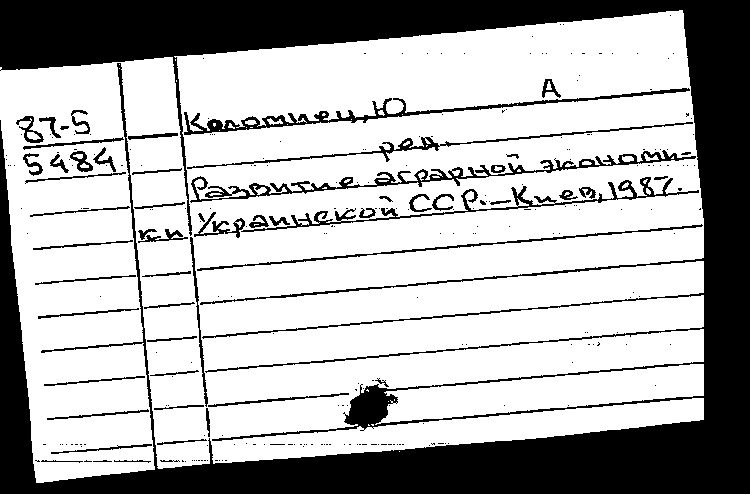 87-5
5484
Коломиец, Ю А
ред.
Развитие аграрной экономи-
ки Украинской ССР.-Киев, 1987.